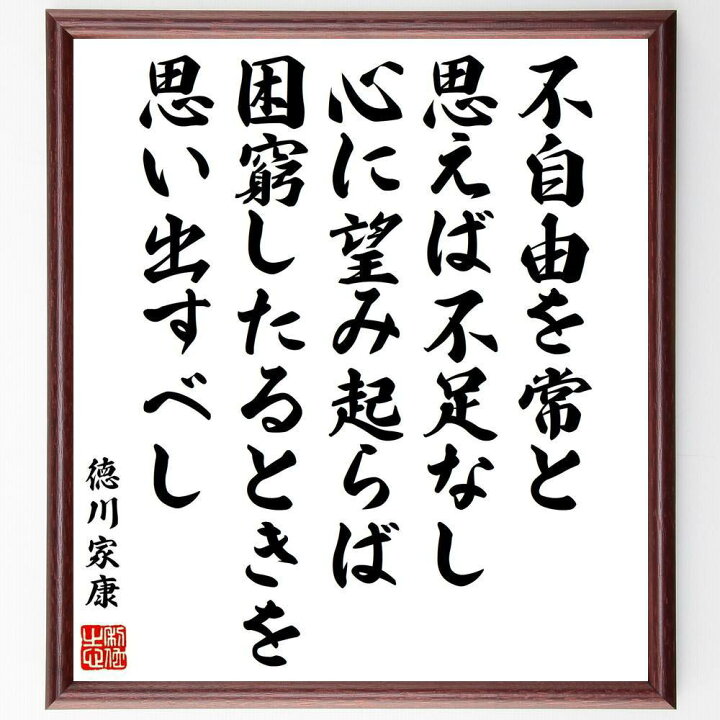 不自由を常と
思えば不足なし
心に望み起らば
困窮したるときを
思い出すべし
徳川家康